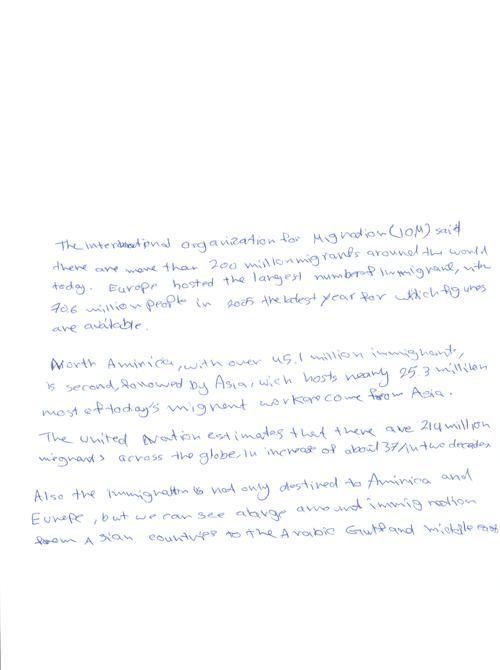 The International organization for Migration (IOM) said
there are more than 200 million migrants around the world
today. Europe hosted the largest number of Immigrant, with
70.6 million people in 2005 the latest year for which figures
are available.
North Aminica, with over 45.1 million immighants,
is second, followed by Asia, wich hosts nearly 25.3 millilon
most of today's mignent workere come from Asia.
The united Nation estimates that there are 214 million
megrants across the globe, In increase of about 37% in two decades
Also the Immigration is not only destined to Aminica and
Europe, but we can see a large amound immigration
from Asian countries to the Arabic Gulf and middle east